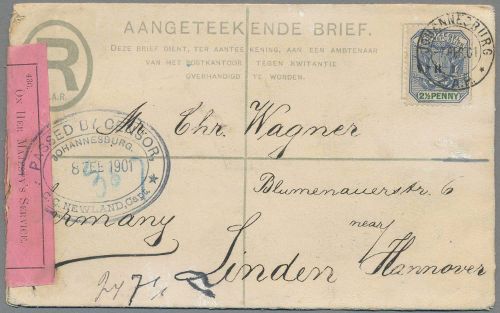 AANGETEEKENDE BRIEF.
DEZE BRIEF DIENT, TER AANTEEKENING, AAN EEN AMBTENAAR
VAN HET POSTKANTOOR TEGEN KWITANTIE
OVERHANDIGD TE WORDEN.
R
Z.A.R.
JOHANNESBURG
2½ PENNY
ON HER MAJESTY'S SERVICE.
PASSED BY CENSOR,
JOHANNESBURG.
8 FEB 1901
NEWLAND, Capt
Mr Chr. Wagner
Blumenauerstr. 6
Germany
Linden near Hannover